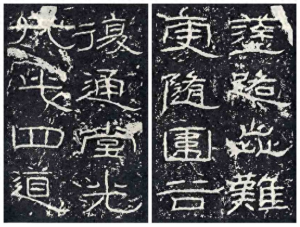 塗路歰難
更隨圍谷
復通堂光
凡此四道